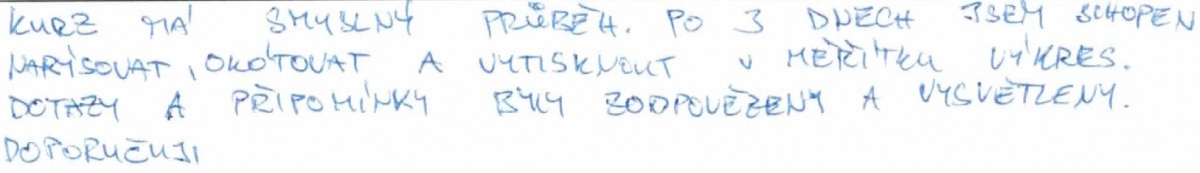 KURZ MÁ SMYSLNÝ PRŮBĚH. PO 3 DNECH JSEM SCHOPEN
NARÝSOVAT, OKÓTOVAT A VYTISKNOUT V MĚŘÍTKU VÝKRES.
DOTAZY A PŘIPOMÍNKY BYLY ZODPOVĚZENY A VYSVĚTLENY.
DOPORUČUJI